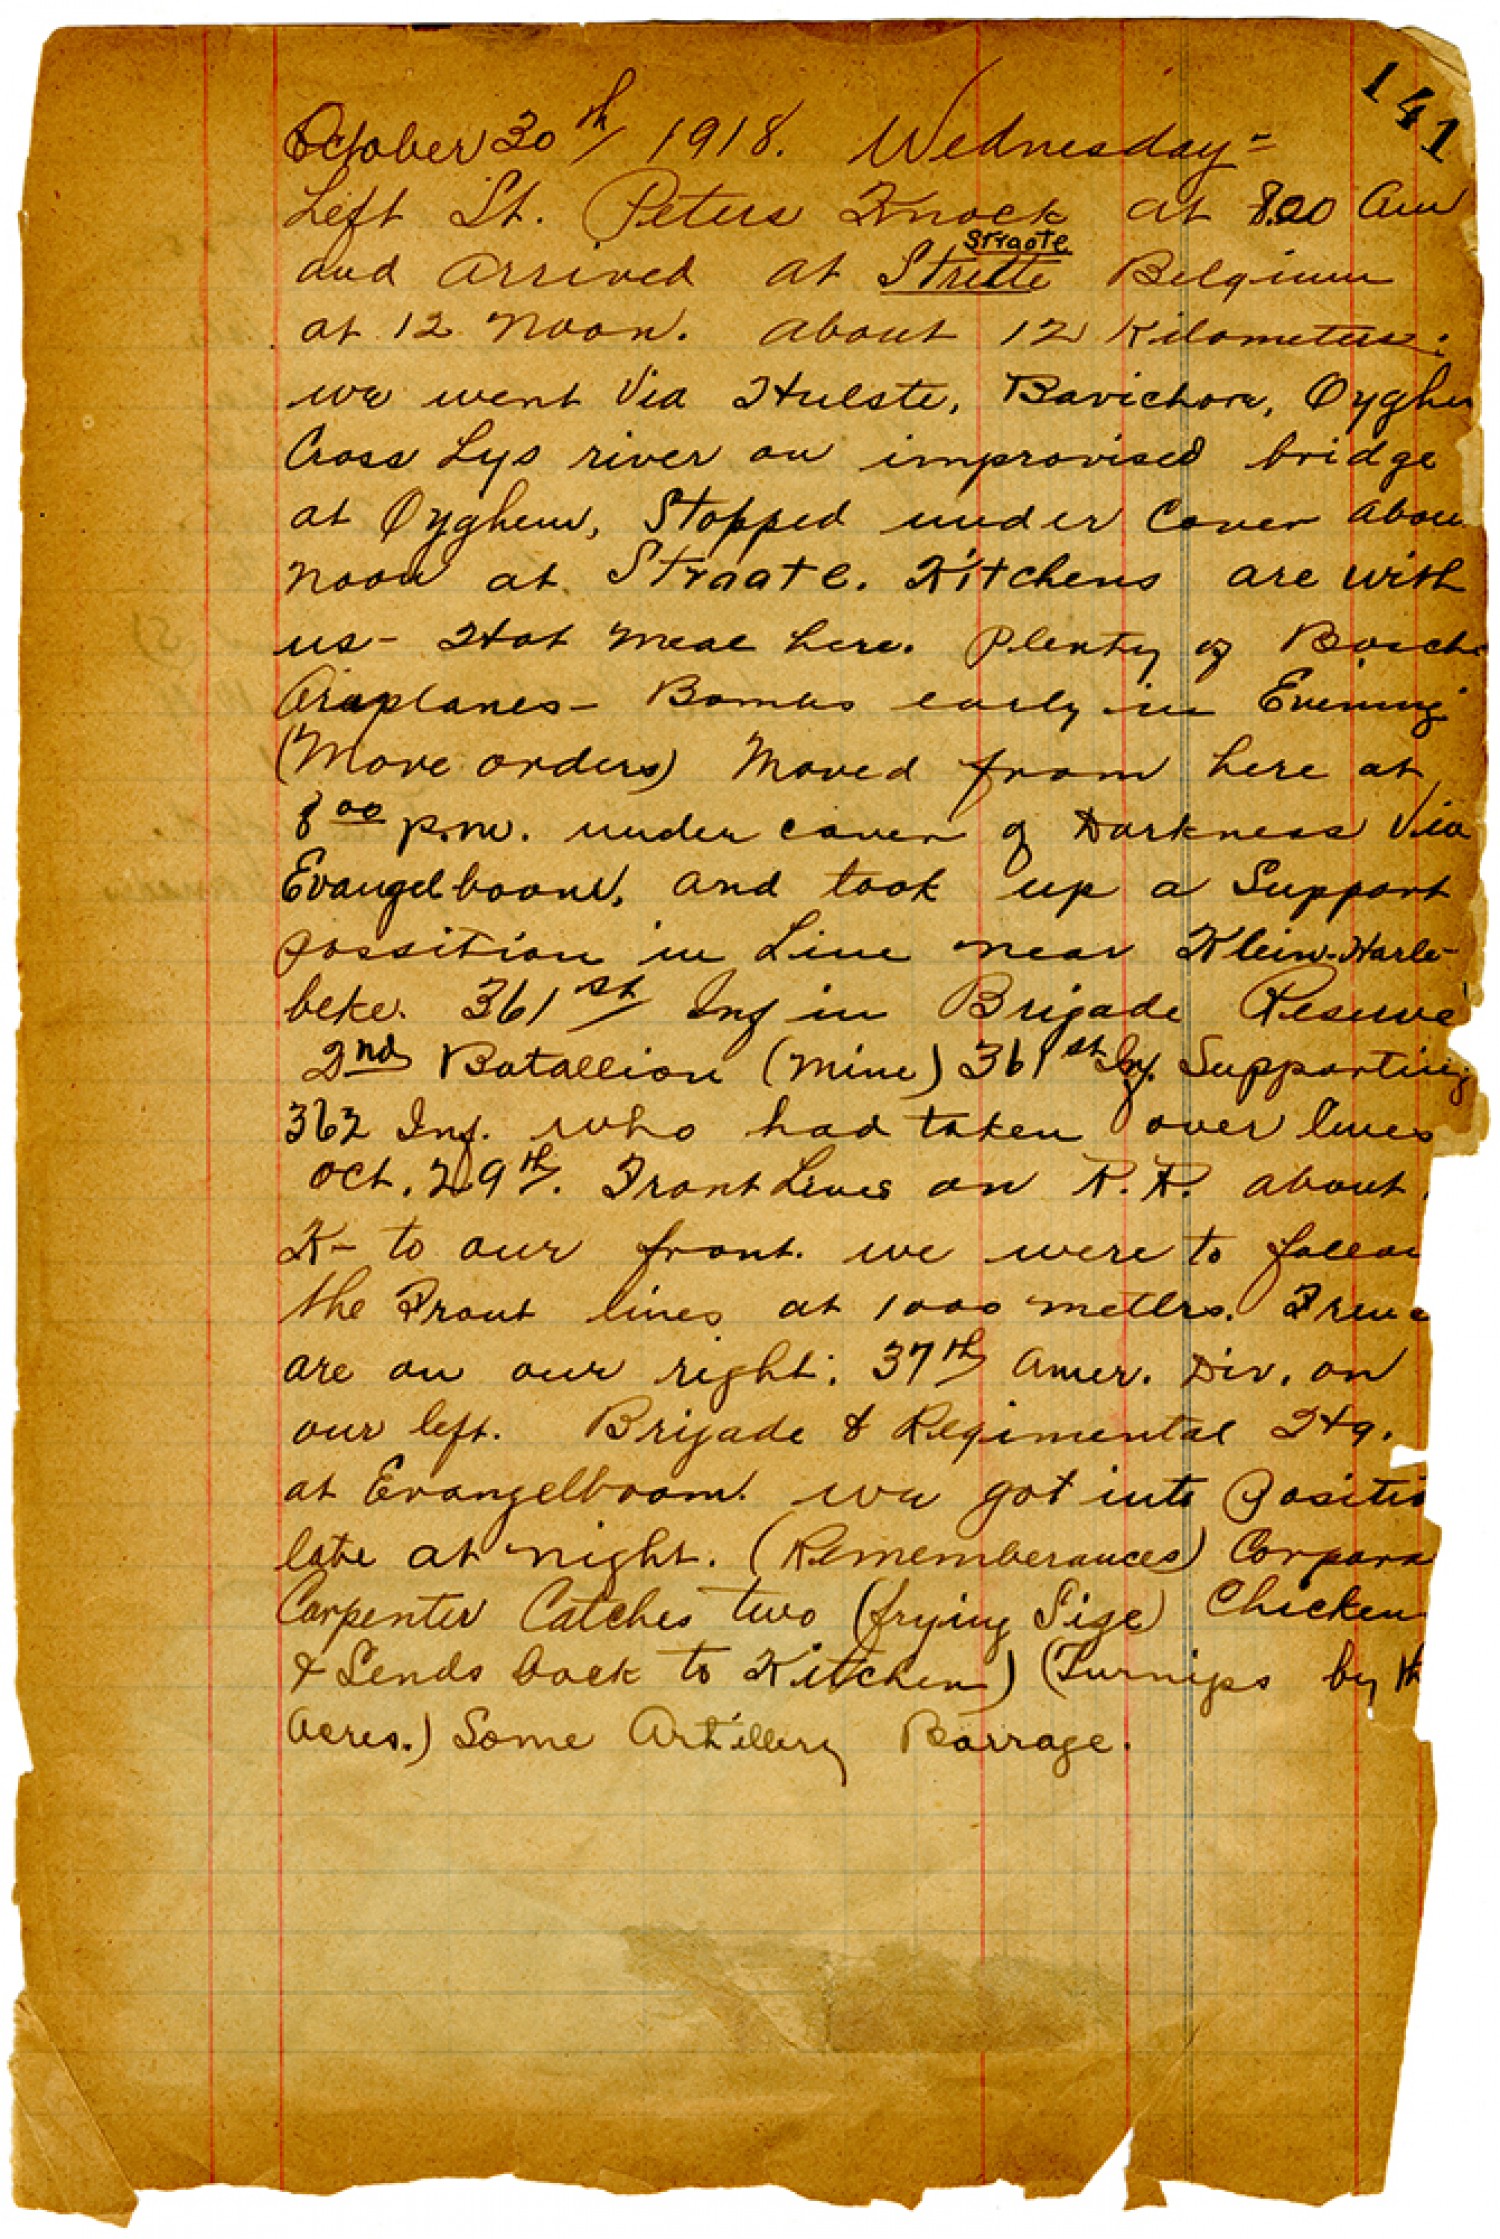 141
October 30th 1918. Wednesday =
Left St. Peters Knock at 8.00 Am
Straate
and Arrived at Strette Belgium
at 12 Noon. About 12 Kilometers.
we went Via Hulste, Bavichove, Oyghe
Cross Lys river on improvised bridge
at Oyghem, Stopped under Cover abou
noon at Straate. Kitchens are with
us - Hot meal here. Plenty of Bosche
Airaplanes - Bombs early in Evening
(Move orders) Moved from here at
8 00 p.m. under cover of Darkness Via
Evangelboom, and took up a Support
possition in Line near Klein-Harle-
beke. 361st Inf in Brigade Reserve
2nd Batallion (Mine) 361st Inf. Supporting
362 Inf. who had taken over lines
Oct. 29th. Front Lines on R.R. about
K - to our front. we were to follow
the Front lines at 1000 metters. Frenc
are on our right. 37th Amer. Div. on
our left. Brigade & Regimental Hq.
at Evangelboom. we got into Positio
late at night. (Rememberances) Corpora
Carpenter Catches two (frying Size) Chicken
& Sends back to Kitchen) (Turnips by th
Acres.) Some Artillery Barrage.